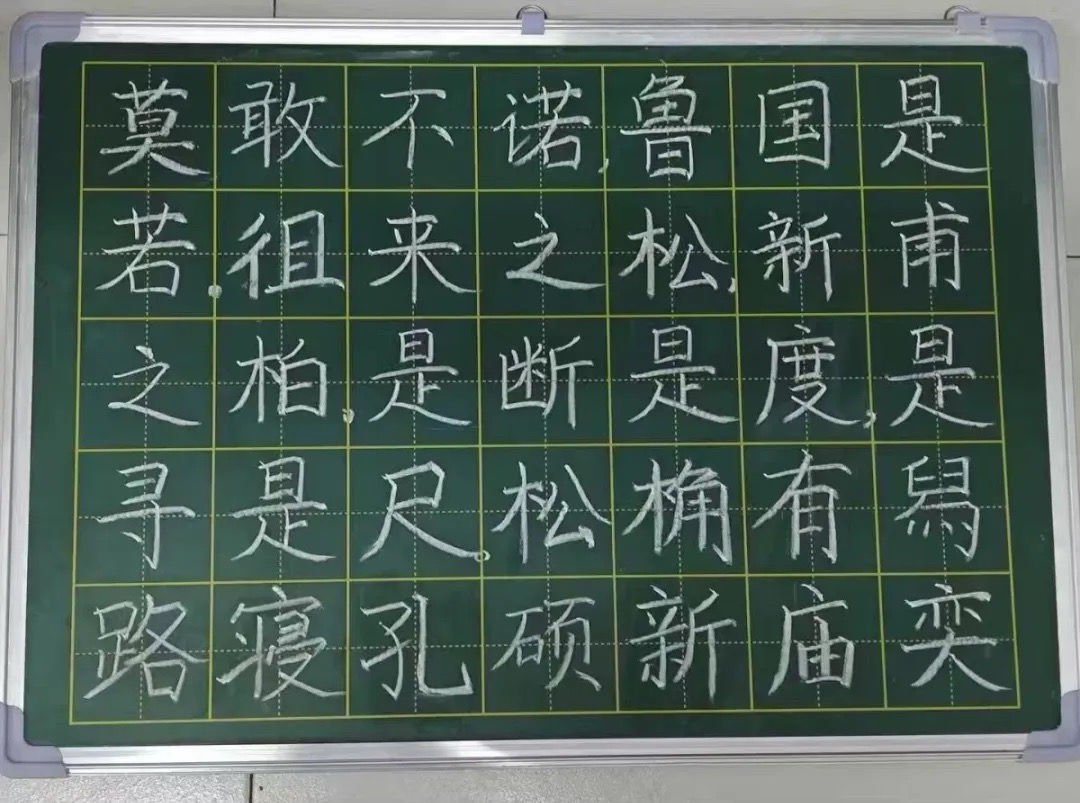 莫敢不诺,鲁国是
若。徂来之松,新甫
之柏。是断是度,是
寻是尺。松桷有舄
路寝孔硕新庙奕